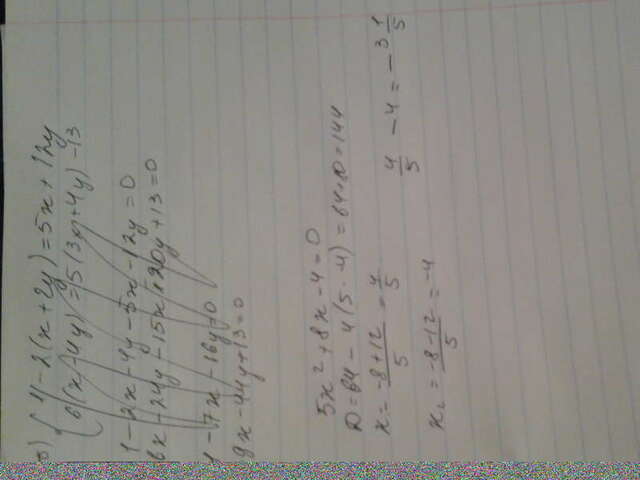 б) { 1 - 2(x + 2y) = 5x + 12y
6(x - 4y) = 5(3x + 4y) - 13
1 - 2x - 4y - 5x - 12y = 0
6x - 24y - 15x - 20y + 13 = 0
1 - 7x - 16y = 0
9x - 44y + 13 = 0
5x² + 8x - 4 = 0
D = 64 - 4(5 · -4) = 64 + 80 = 144
x = (-8 + 12)/5 = 4/5
4/5 - 4 = -3 1/5
x₂ = (-8 - 12)/5 = -4